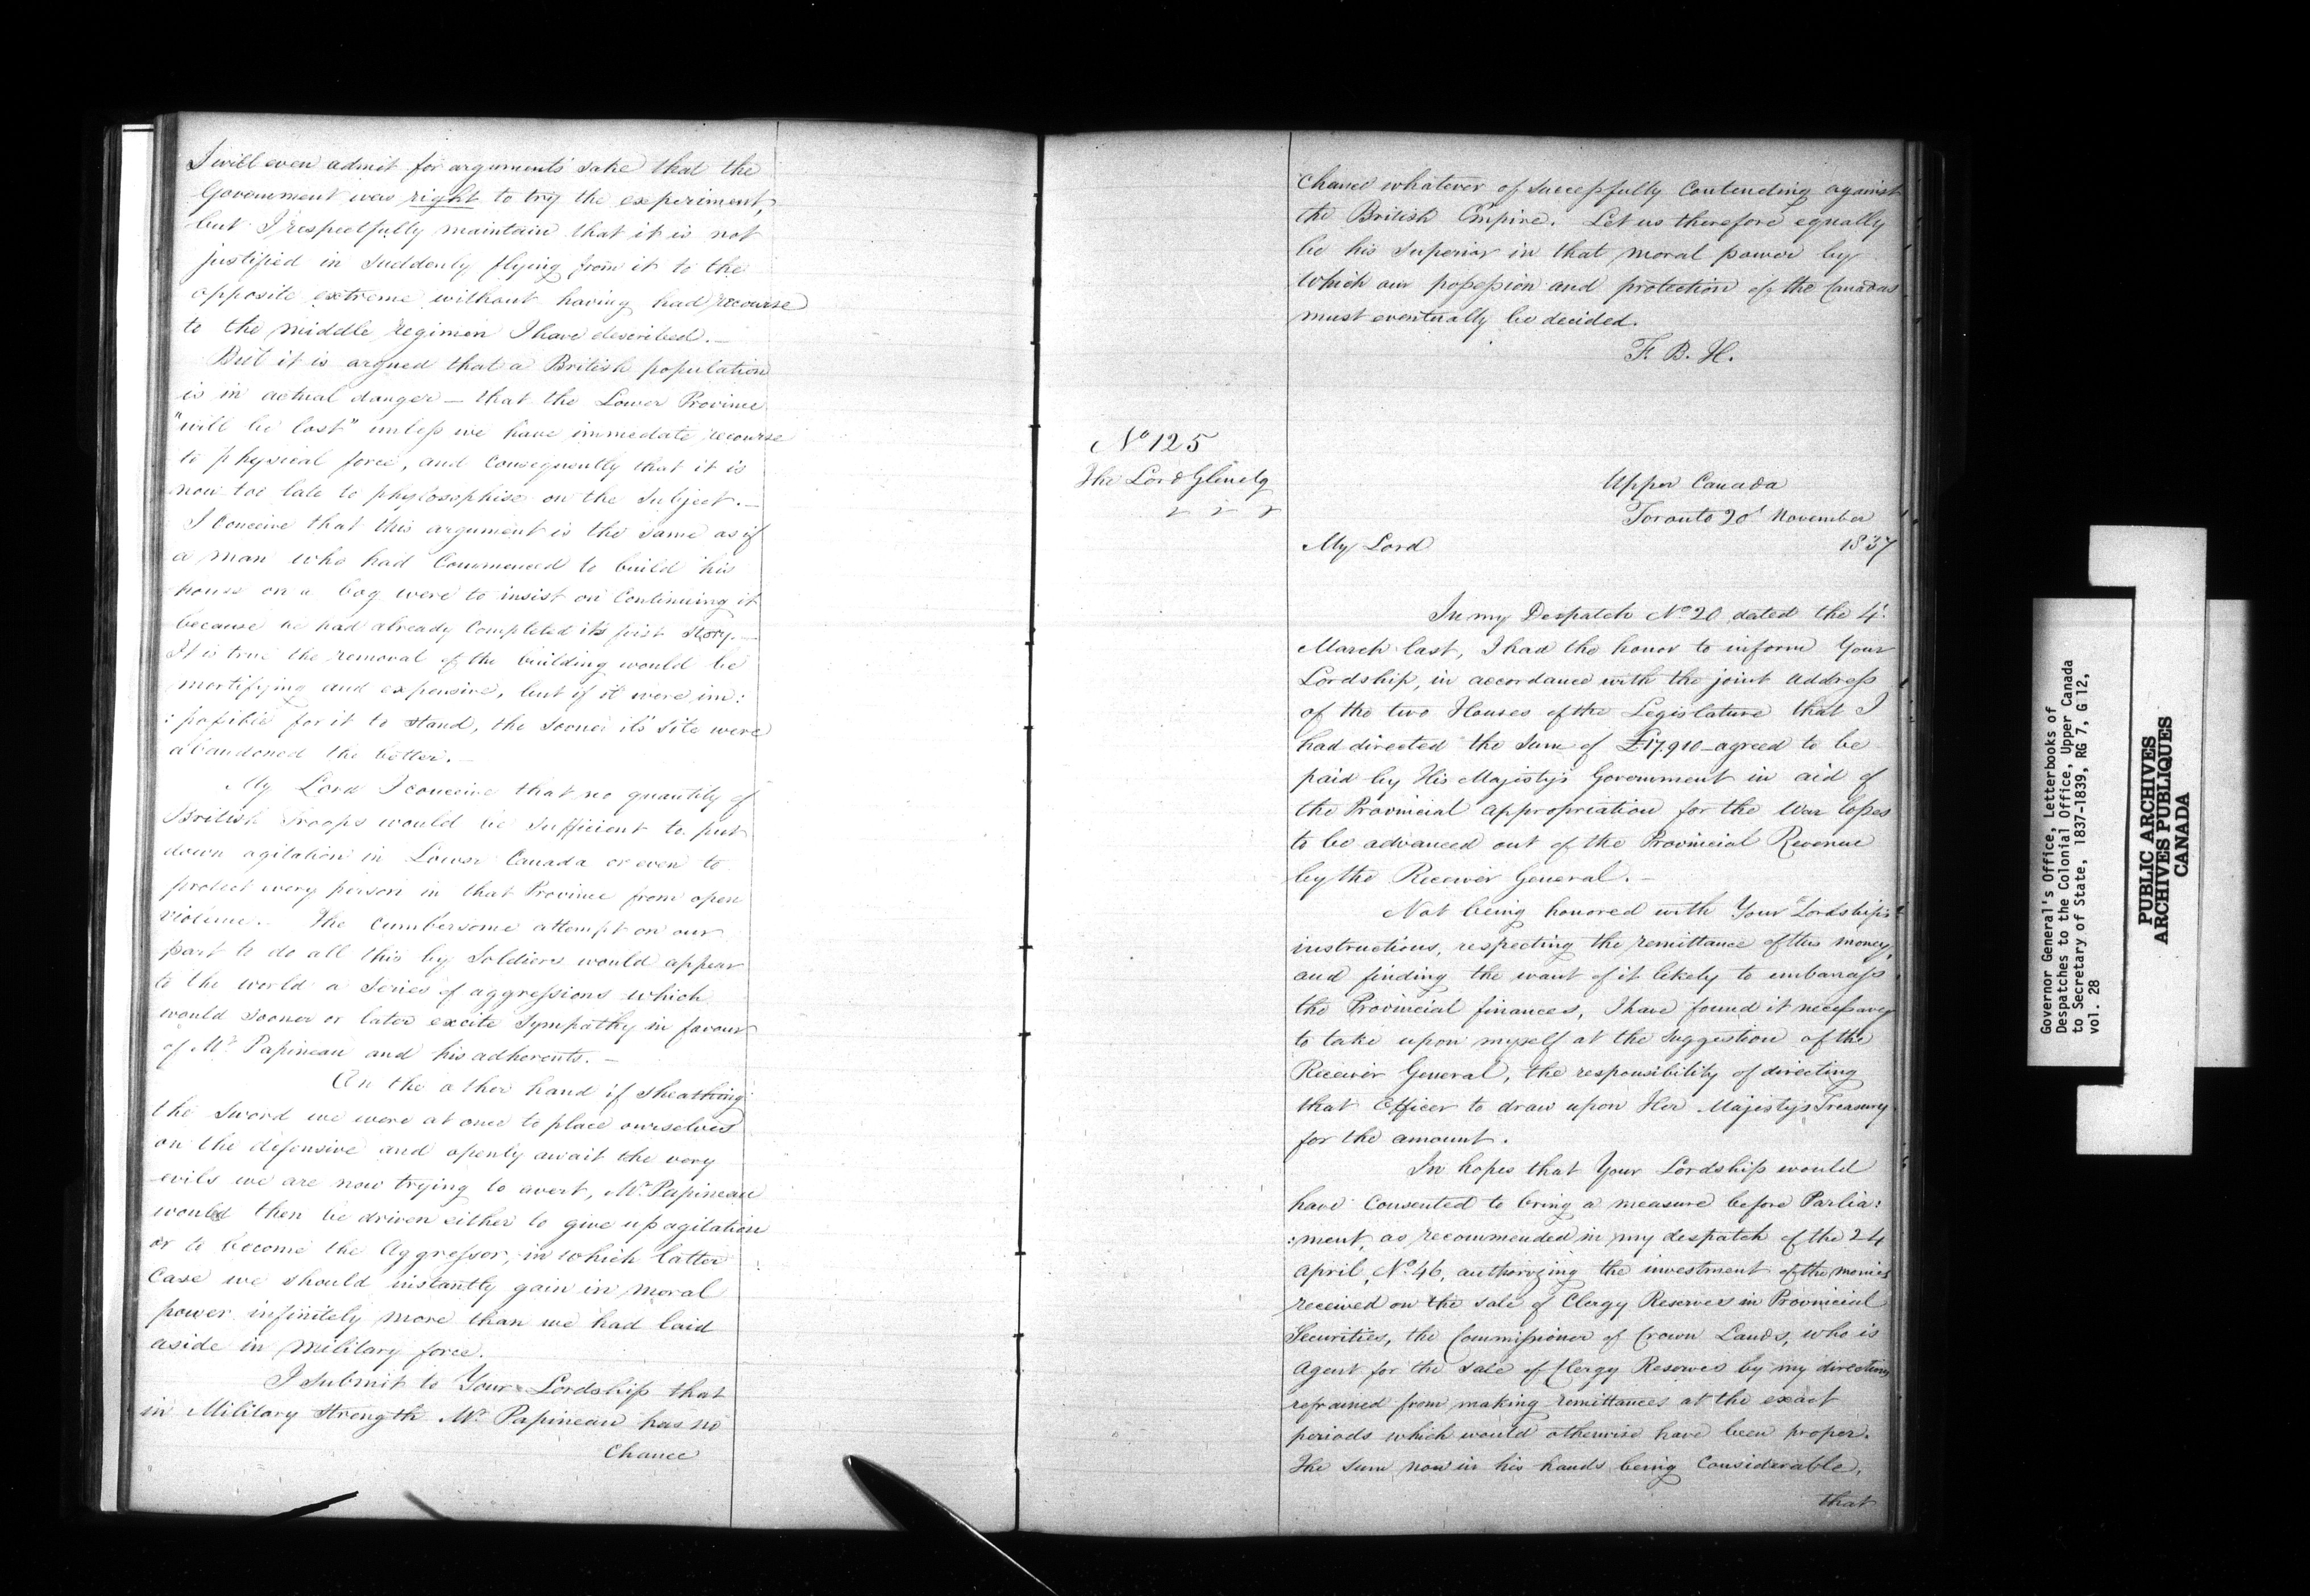 I will even admit for arguments' sake that the
Government was right to try the experiment,
but I respectfully maintain that it is not
justified in suddenly flying from it to the
opposite extreme without having had recourse
to the middle regimen I have described. —
But it is argued that a British population
is in actual danger — that the Lower Province
"will be lost" unless we have immediate recourse
to physical force, and Consequently that it is
now too late to phylosophise on the Subject. —
I Conceive that this argument is the same as if
a man who had Commenced to build his
house on a bog were to insist on Continuing it
because he had already Completed its first Story. —
It is true the removal of the building would be
mortifying and expensive, but if it were im:
:possible for it to stand, the sooner its' site were
abandoned the better. —
My Lord I conceive that no quantity of
British Troops would be sufficient to put
down agitation in Lower Canada or even to
protect every person in that Province from open
violence. The cumbersome attempt on our
part to do all this by Soldiers would appear
to the world a Series of aggressions which
would sooner or later excite Sympathy in favour
of Mr Papineau and his adherents. —
On the other hand if sheathing
the Sword we were at once to place ourselves
on the defensive and openly await the very
evils we are now trying to avert, Mr. Papineau
would then be driven either to give up agitation
or to become the Aggressor, in which latter
Case we should instantly gain in moral
power infinitely more than we had laid
aside in Military force.
I Submit to Your Lordship that
in Military Strength Mr Papineau has no
Chance
Chance whatever of Successfully Contending against
the British Empire. Let us therefore equally
be his Superior in that moral power by
Which our possession and protection of the Canadas
must eventually be decided.
F. B. H.
No 125
The Lord Glenelg
Upper Canada
Toronto 20' November
My Lord 1837
In my Despatch No. 20 dated the 4'
March last, I had the honor to inform Your
Lordship, in accordance with the joint Address
of the two Houses of the Legislature that I
had directed the Sum of £17,910 agreed to be
paid by His Majesty's Government in aid of
the Provincial appropriation for the War losses
to be advanced out of the Provincial Revenue
by the Receiver General. —
Not being honored with Your Lordship's
instructions, respecting the remittance of this money,
and finding the want of it likely to embarrass
the Provincial finances, I have found it necessary
to take upon myself at the Suggestion of the
Receiver General, the responsibility of directing
that Officer to draw upon Her Majesty's Treasury
for the amount.
In hopes that Your Lordship would
have Consented to bring a measure before Parlia:
:ment, as recommended in my despatch of the 24
April, No. 46, authorizing the investment of the monies
received on the sale of Clergy Reserves in Provincial
Securities, the Commissioner of Crown Lands, who is
Agent for the Sale of Clergy Reserves by my direction
refrained from making remittances at the exact
periods which would otherwise have been proper.
The Sum now in his hands being Considerable,
that
Governor General's Office, Letterbooks of
Despatches to the Colonial Office, Upper Canada
to Secretary of State, 1837-1839, RG 7, G 12,
vol. 28
PUBLIC ARCHIVES
ARCHIVES PUBLIQUES
CANADA